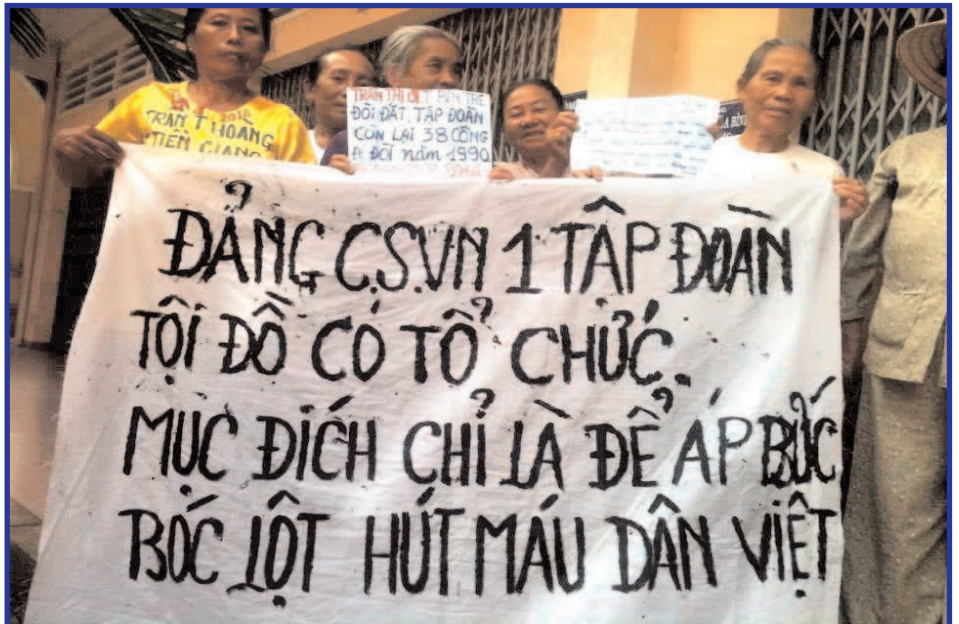 2018
TRẦN T HOÀNG
TIỀN GIANG
TRẦN THỊ
T BẾN TRE
ĐÒI ĐẤT. TẬP ĐOÀN
CÒN LẠI 38 CÔNG
ĐÒI năm 1990
ĐẢNG C.S.VN 1 TẬP ĐOÀN
TỘI ĐỒ CÓ TỔ CHỨC.
MỤC ĐÍCH CHỈ LÀ ĐỂ ÁP BỨC
BÓC LỘT HÚT MÁU DÂN VIỆT